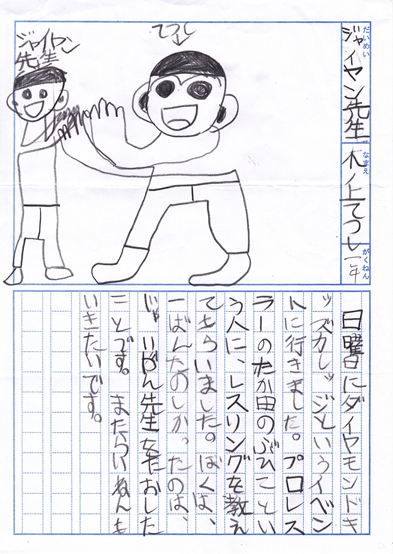 だいめい
ジャイヤン先生
なまえ
木ノ上てつし
がくねん
一年
てつし
ジャイヤン
先生
日曜日にダイヤモンドキ
ッズカレッジというイベン
トに行きました。プロレス
ラーのたか田のぶひことい
う人に、レスリングを教え
てもらいました。ぼくは、
一ばんたのしかったのは、
先生をたおした
ことです。またらいねんも
いきたいです。